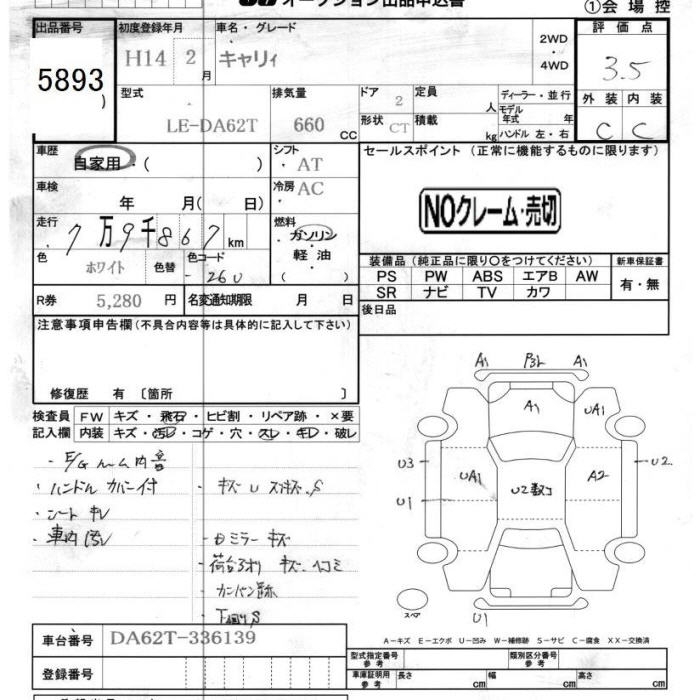 オークション出品申込書
①会場控
出品番号 初度登録年月 車名・グレード 2WD・4WD 評価点
5893 H14 2月 キャリィ 3.5
型式 排気量 ドア 定員 人 ディーラー・並行 外装 内装
LE-DA62T 660 CC 2 モデル年式 年 C C
形状 CT 積載 kg ハンドル 左・右
車歴 自家用・( ) シフト・AT セールスポイント (正常に機能するものに限ります)
車検 年 月( 日) 冷房 AC
NOクレーム・売切
走行 7万9千867km 燃料・ガソリン・軽油 ( )
色 ホワイト 色替 色コード 26U
装備品 (純正品に限り○をつけてください) 新車保証書
PS PW ABS エアB AW 有・無
SR ナビ TV カワ
R券 5,280円 名変通知期限 月 日 後日品
注意事項申告欄(不具合内容等は具体的に記入して下さい)
修復歴 有〔箇所 〕
検査員 FW キズ・飛石・ヒビ割・リペア跡・×要
記入欄 内装 キズ・汚レ・コゲ・穴・スレ・キレ・破レ
・E/Gルーム内音
・ハンドルカバー付 ・キズU
・シートキレ
・車内汚レ ・ミラーキズ
・荷台アオリ キズ・ヘコミ
・カンバン跡
・下廻りS
A1 P3L A1
A1 UA1
U3 UA1 U2数コ A2 U2
U1
スペア U1
A-キズ E-エクボ U-凹み W-補修跡 S-サビ C-腐食 XX-交換済
車台番号 DA62T-336139
型式指定番号 参考 類別区分番号 参考
登録番号 車庫証明用 参考 長さ cm 幅 cm 高さ cm